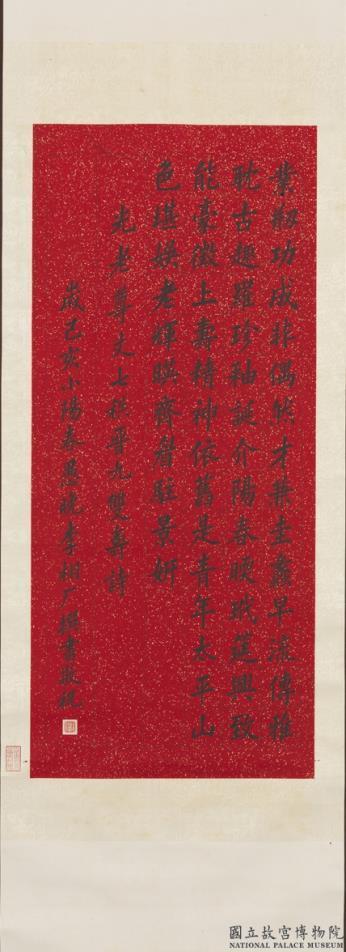 業粉功成非偶然才兼圭蠡早流傳推
耽古趣羅珍秞誕介陽春暖玳筵興致
能豪徵上壽精神依舊是青年太平山
色堪娛老輝暎齊眉駐景妍
光老尊丈七秩晉九雙壽詩
歲己亥小陽春愚晚李相厂撰書敬祝
國立故宮博物院
NATIONAL PALACE MUSEUM